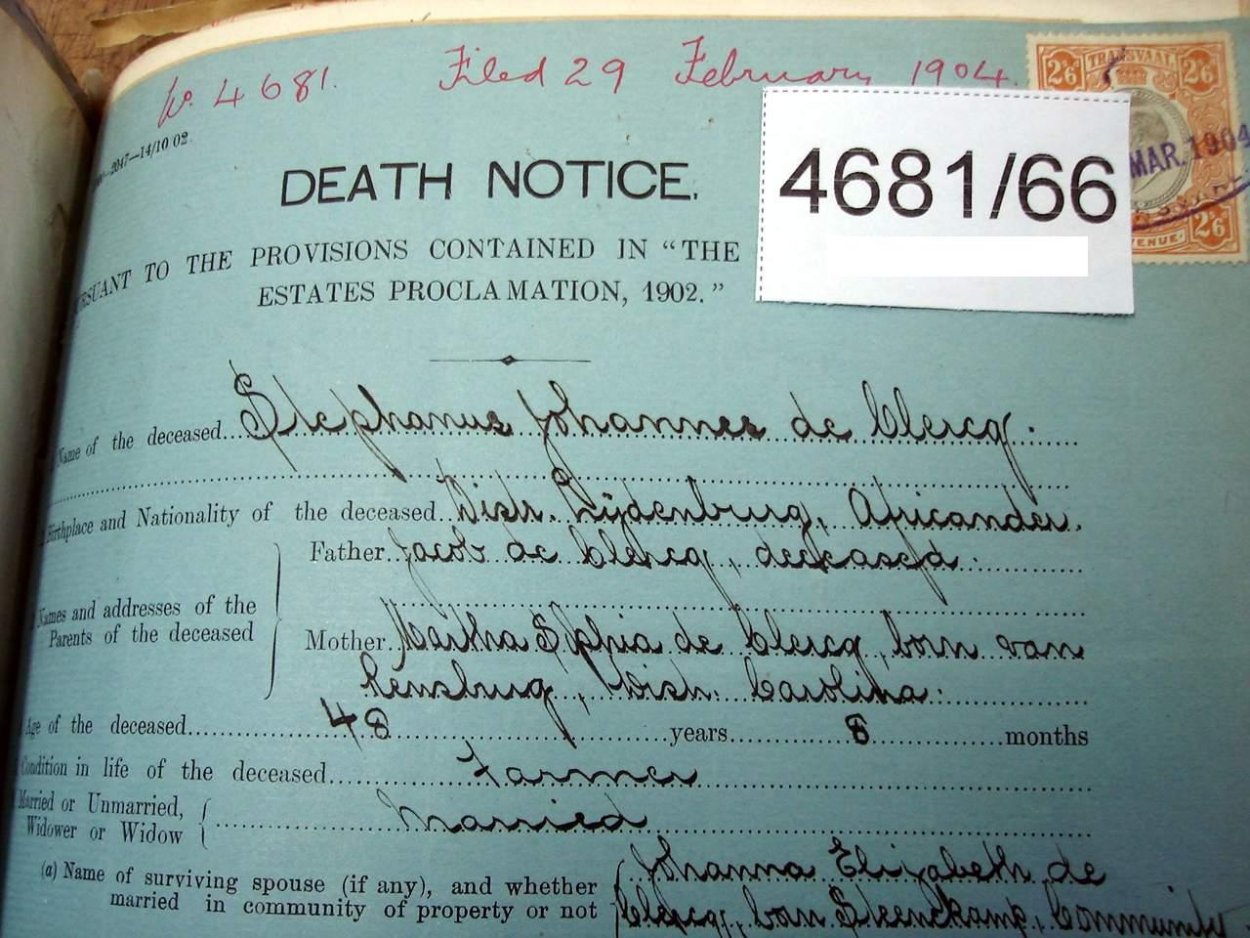 No. 4681. Filed 29 February 1904.
2047—14/10 02
DEATH NOTICE.
TO THE PROVISIONS CONTAINED IN “THE
ESTATES PROCLAMATION, 1902.”
4681/66
TRANSVAAL
2/6 2/6
MAR. 1904
2/6
Name of the deceased Stephanus Johannes de Clercq.
Birthplace and Nationality of the deceased Distr. Lijdenburg, Africander.
Father Jacob de Clercq, deceased.
Names and addresses of the
Parents of the deceased
Mother Martha Sophia de Clercq, born van
Rensburg, Distr. Carolina.
Age of the deceased 48 years 8 months
Condition in life of the deceased Farmer
Married or Unmarried,
Widower or Widow
Married
(a) Name of surviving spouse (if any), and whether
married in community of property or not
Johanna Elizabeth de
Clercq, van Steenekamp, Community